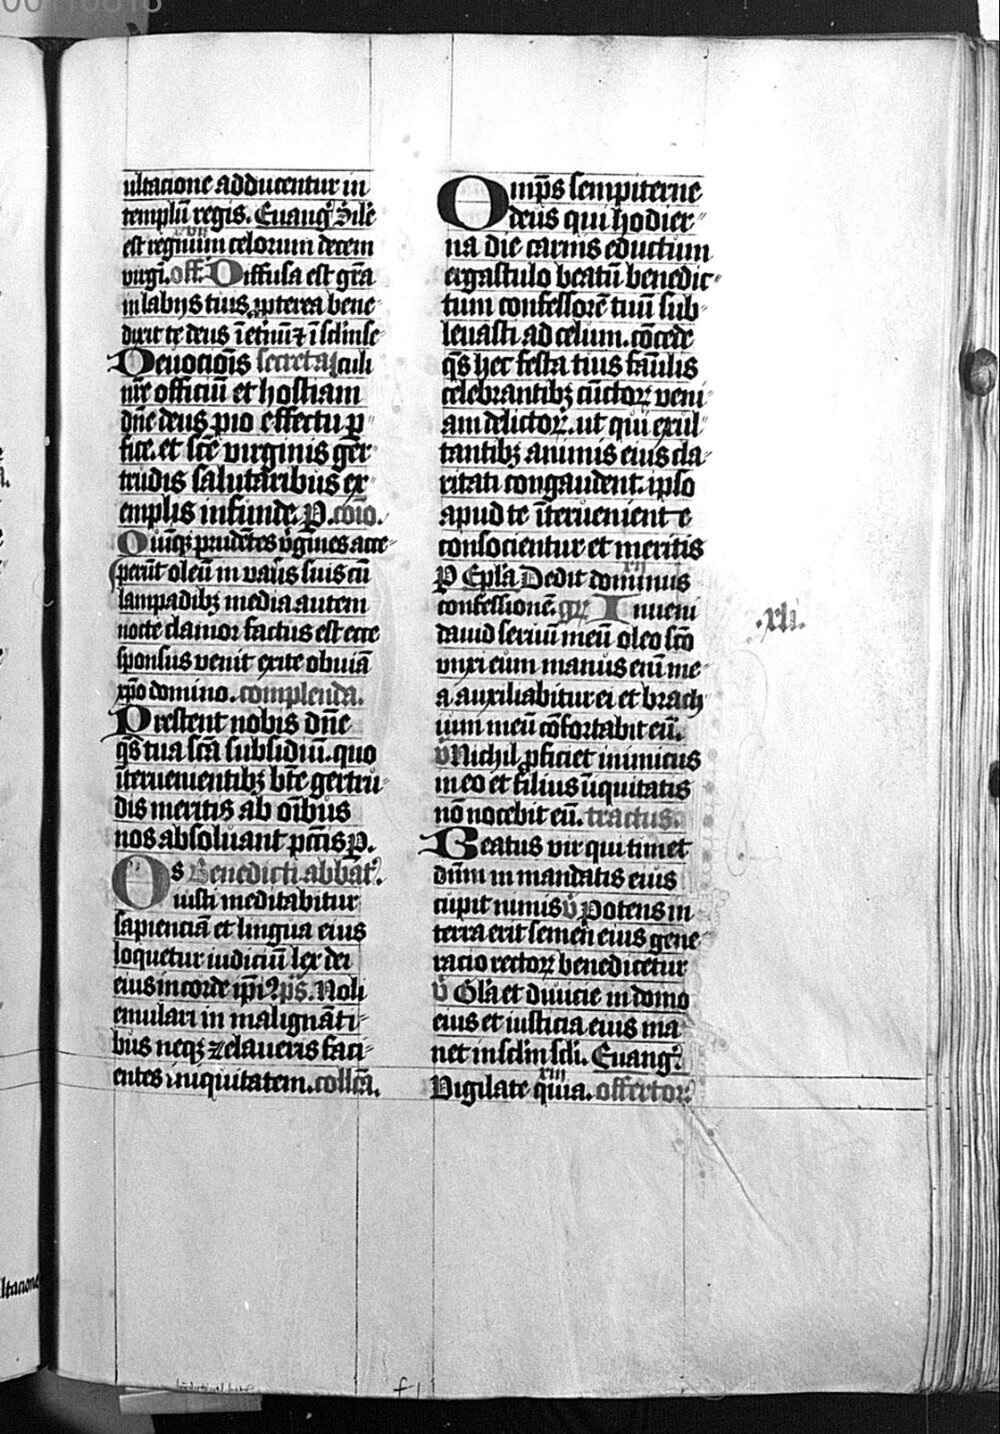 00110818
ultacione adducentur in
templū regis. Euangͥ Sile
est regnum celorum decem
xvii
virgī. off. Diffusa est grā
in labijs tuis ꝓpterea bene
dixit te deus ī etnū ⁊ ī sclm sc̄
Deuocōis secreta li culi
nrē officiū et hostiam
dn̄e deus pio effectu p
fice. et scē virginis ger
trudis salutaribus ex
emplis infunde. P. cōio.
Quīqꝫ prudētes v̓gines acce
perūt oleū in vasis suis cū
lampadibꝫ media autem
nocte clamor factus est ecce
sponsus venit exite obuiā
xp̄o domino. complenda.
Prestent nobis dn̄e
qs̄ tua scā subsidiū. quo
īterueuientibꝫ btē gertru
dis meritis ab oībus
nos absoluant pctīs P.
Os Benedicti abbat̓.
iusti meditabitur
sapienciā et lingua eius
loquetur iudiciū lex dei
eius in corde ip̄i⁹ ps̄. Noli
emulari in malignāti
bus neqꝫ zelaueris faci
entes iniquitatem. collcā.
Omp̄s sempiterne
deus qui hodier
na die carnis eductum
ergastulo beatū benedic
tum confessorē tuū sub
leuasti ad celum. cōcede
qs̄ hec festa tuis famlis
celebrantibꝫ cūctoꝝ veni
am delictoꝝ. ut qui exul
tantibꝫ animis eius cla
ritati congaudent. ipso
apud te īteruenient e
consocientur et meritis
xii
P Epl̄a Dedit dominus
confessionē. gr̄. Inueni
.xli.
dauid seruū meū oleo scō
vnxi eum manus enī me
a auxiliabitur ei et brach
ium meū cōfortabit eū.
v̓ Nichil ꝓficiet inimicus
in eo et filius īiquitatis
nō nocebit eū. tractus.
Beatus vir qui timet
dn̄m in mandatis eius
cupit nimis v̓ Potens in
terra erit semen eius gene
racio rectoꝝ benedicetur
v̓ Glā et diuicie in domo
eius et iusticia eius ma
net in sclm scli. Euangͥ.
xiii
Vigilate quia. offertor̓.
ltacione